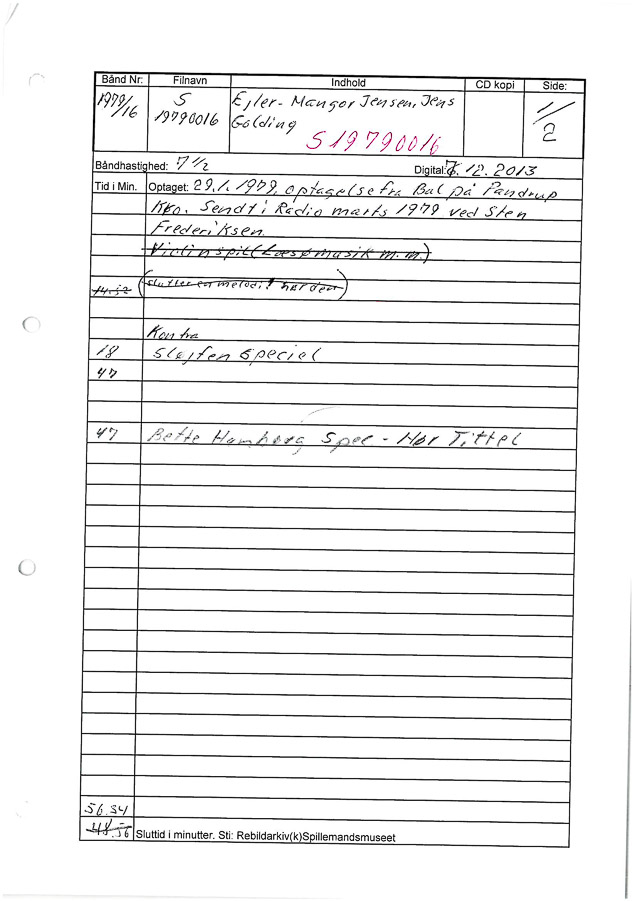 Bånd Nr: Filnavn Indhold CD kopi Side:
1979/16 S 19790016 Ejler-Mangor Jensen, Jens Golding S19790016 1/2
Båndhastighed: 7 1/2 Digital: 7.12.2013
Tid i Min. Optaget: 29.1.1979, optagelse fra Bal på Pandrup
Kro. Sendt i Radio marts 1979 ved Sten
Frederiksen.
Violinspil (Læsømusik m.m.)
14.52 (slutter en melodi! hør den)
Kontra
18 Sløjfen speciel
47
47 Bette Homborg Spec - Hør Tittel
56.34
48.56 Sluttid i minutter. Sti: Rebildarkiv(k)Spillemandsmuseet